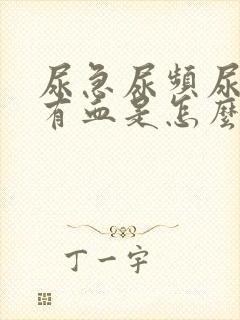 尿急尿頻尿
有血是怎麼
丁一宇